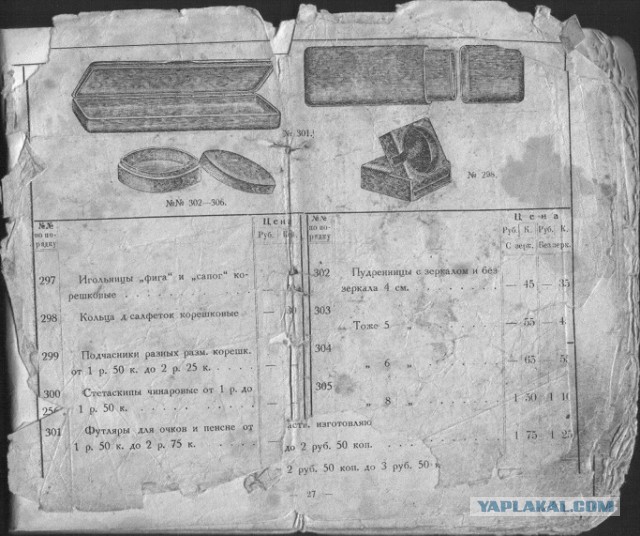 № 301.
№№ 302—306.
№ 298.
№№ по по-рядку
Цена
Руб.
297 Игольницы „фига" и „сапог" ко-
решковые
298 Кольца д салфеток корешковые — 30
299 Подчасники разных разм. корешк.
от 1 р. 50 к. до 2 р. 25 к. —
300 Стетаскипы чинаровые от 1 р. до
1 р. 50 к.
301 Футляры для очков и пенсне от
1 р. 50 к. до 2 р. 75 к. —
№№ по по-рядку
Цена
Руб. К. Руб. К.
С зерк. Без зерк.
302 Пудренницы с зеркалом и без
зеркала 4 см. — 45 — 35
303
Тоже 5 „ — 55 — 4
304
„ 6 „ — 65 — 50
305
„ 8 „ 1 50 1 10
1 75 1 25
изготовляю
до 2 руб. 50 коп.
2 руб. 50 коп. до 3 руб. 50
— 27 —
YAPLAKAL.COM